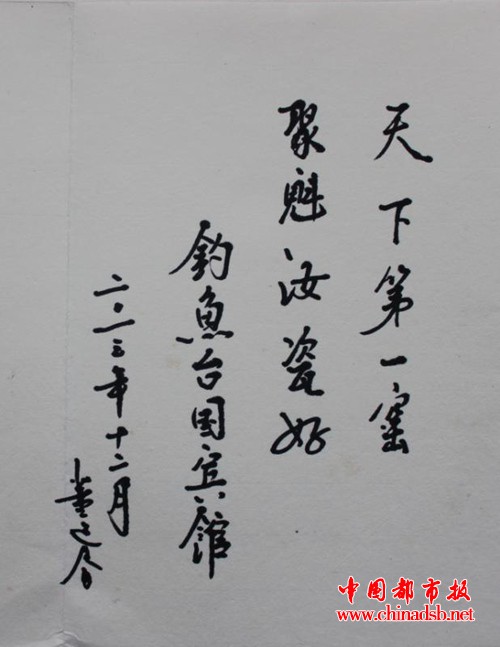 天下第一窑
聚魁汝瓷好
钓鱼台国宾馆
二〇一三年十二月
中国都市报
www.chinadsb.net